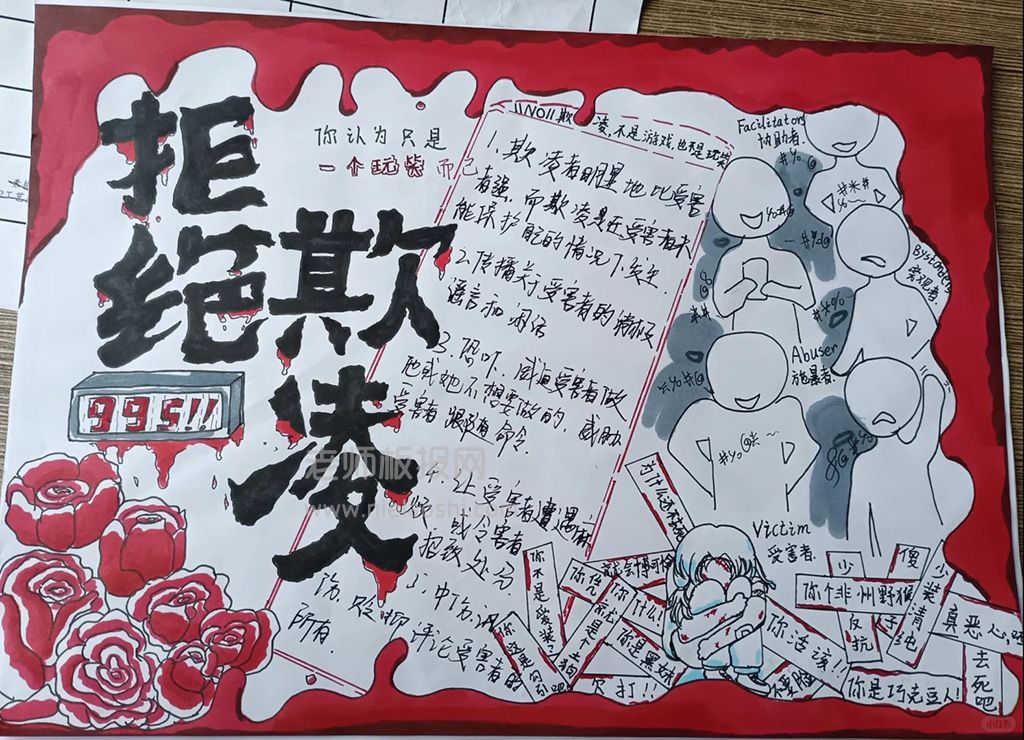 拒
绝
欺
凌
995!!
你认为只是
一个玩笑而已
欺凌,不是游戏,也不是玩笑
1.欺凌者明显地比受害
者强,而欺凌是在受害者未
能保护自己的情况下发生.
2.传播关于受害者的消极
谣言和闲话
3.恐吓、威迫受害者做
他或她不想要做的,威胁
受害者跟随命令.
4.让受害者遭遇麻
烦,或令害者
招致处分
5.中伤、讥
讽、贬抑评论受害者的
所有.
Facilitators
协助者.
Bystanders
旁观者.
Abuser
施暴者.
Victim
受害者.
你不是爱装?
你说什么!
你是黑妹
欠打!!
你活该!!
你个非州野猴子
反抗
少装清纯
真恶人
你是巧克豆人!
去死吧
老师板报网
小红书